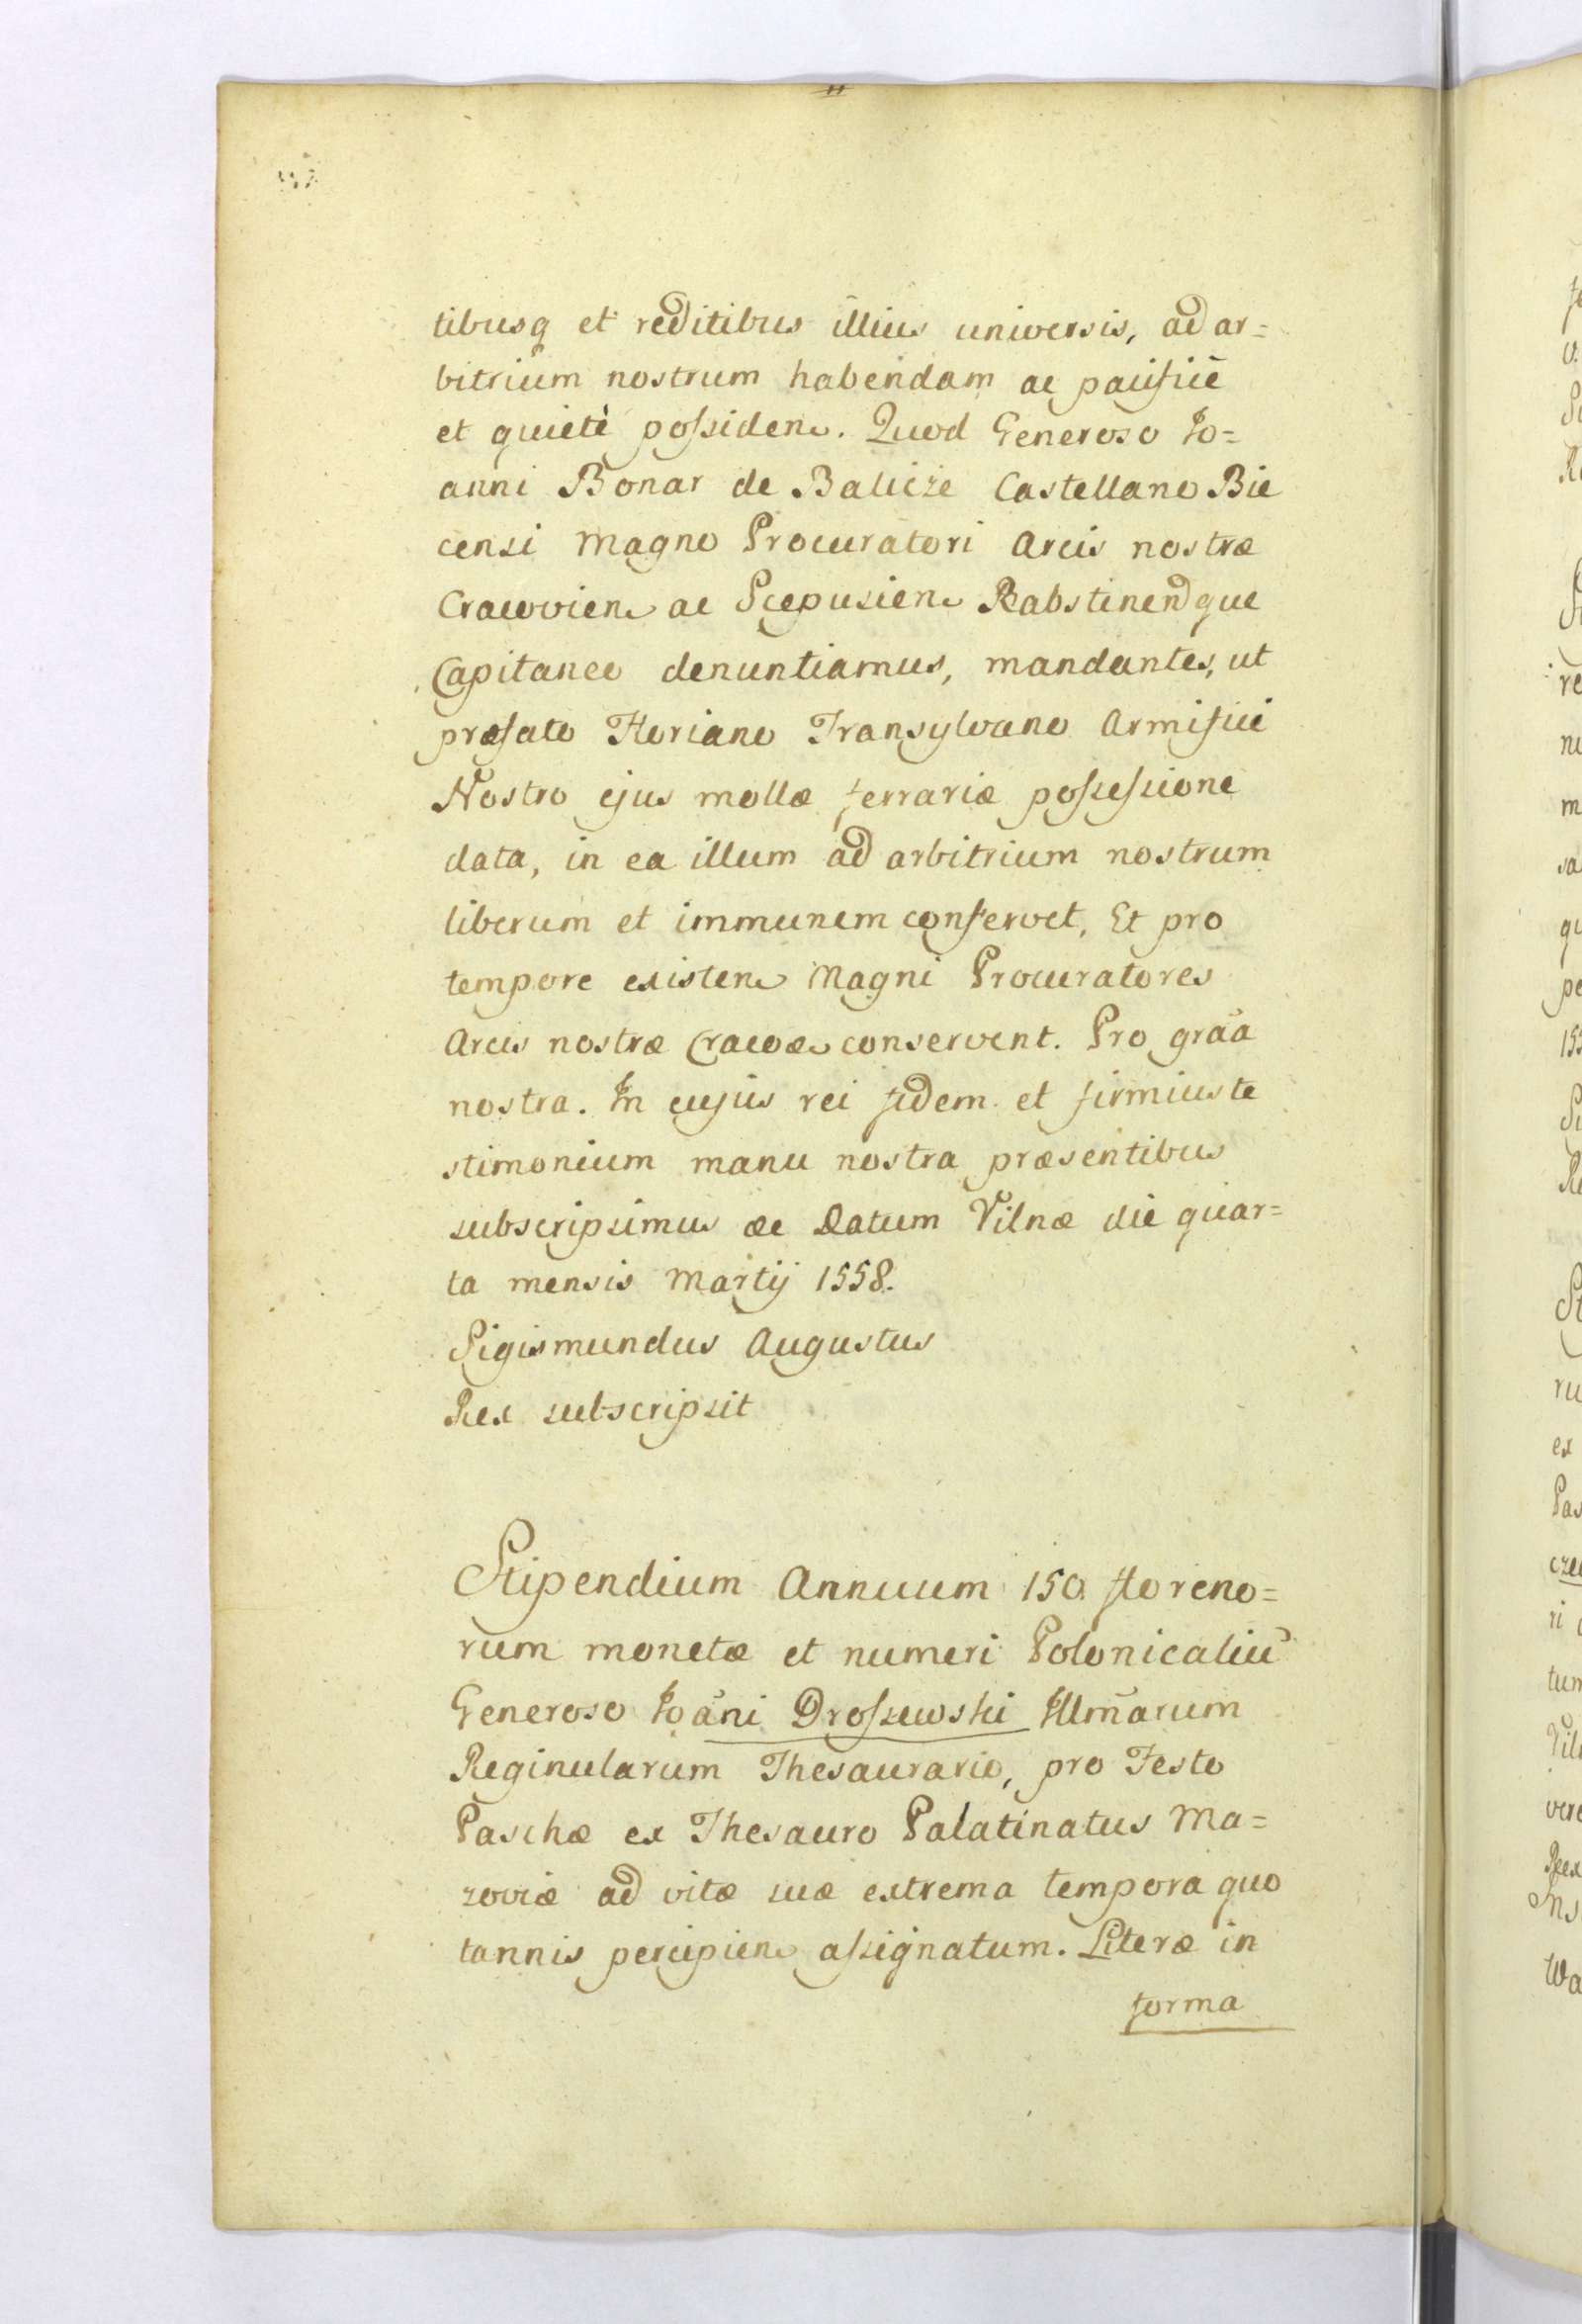 tibusq et reditibus illius universis, ad ar=
bitrium nostrum habendam ac pacificē
et quietè possiden. Quod Generoso Jo=
anni Bonar de Balicze Castellano Bie
censi Magno Procuratori Arcis nostræ
Cracovien ac Scepusien Rabstinendque
Capitaneo denuntiamus, mandantes, ut
præfato Floriano Transylvano Armifici
Nostro ejus mollæ ferrariæ possessione
data, in ea illum ad arbitrium nostrum
liberum et immunem conservet, Et pro
tempore existen Magni Procuratores
Arcis nostræ Cracoæ conservent. Pro grãa
nostra. In cujus rei fidem et firmius te
stimonium manu nostra præsentibus
subscripsimus æc Datum Vilnæ die quar=
ta mensis Martij 1558.
Sigismundus Augustus
Rex subscripsit
Stipendium Annuum 150. floreno=
rum monetæ et numeri Polonicaliū
Generoso Joãni Drossewski Illmãrum
Reginularum Thesaurario, pro Festo
Paschæ ex Thesauro Palatinatus Ma=
zoviæ ad vitæ suæ extrema tempora quo
tannis percipien assignatum. Literæ in
forma